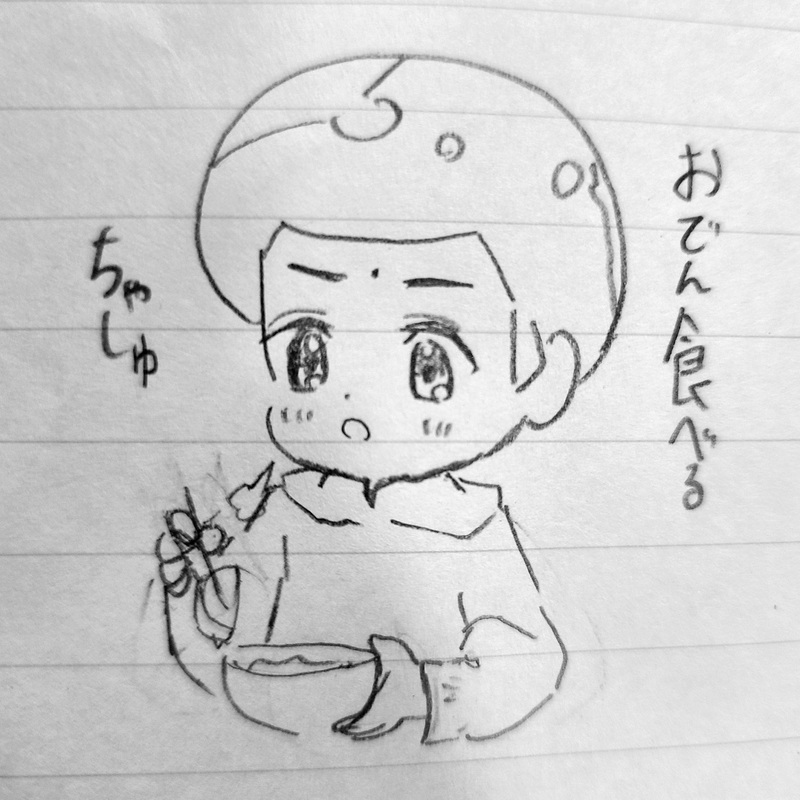 おでん食べる
ちゃしゅ